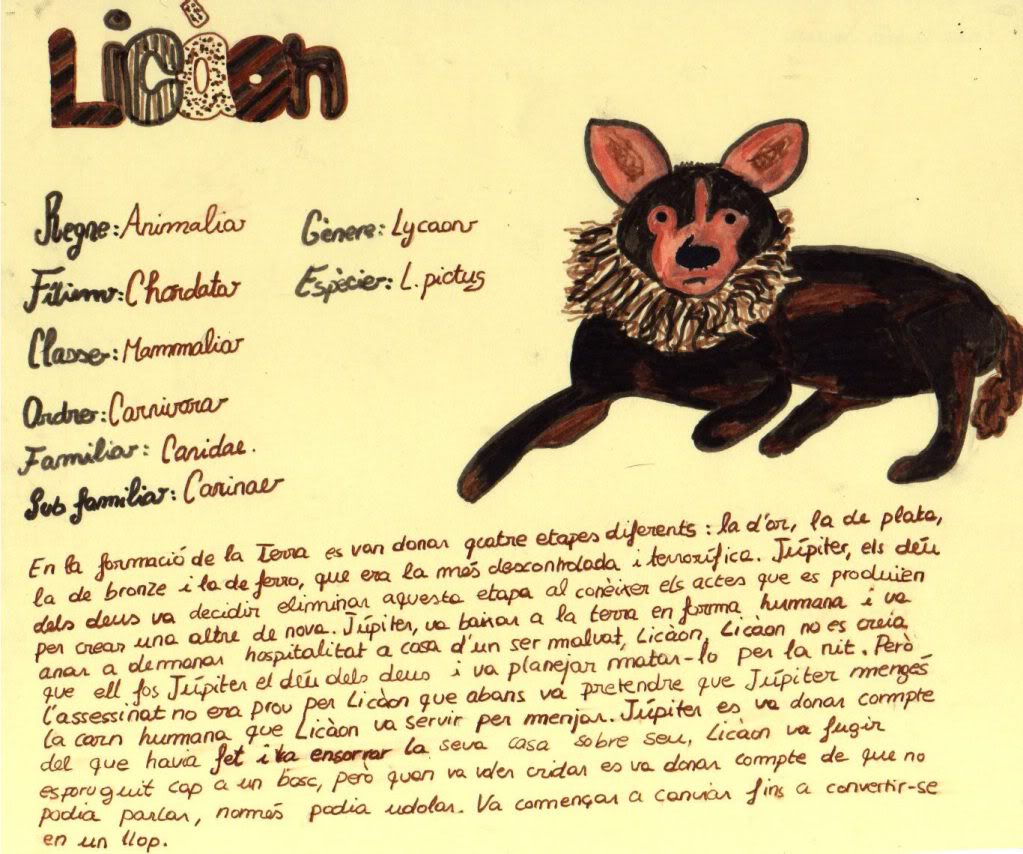 Licàon
Regne: Animalia
Gènere: Lycaon
Fílium: Chordata
Espècie: L. pictus
Classe: Mammalia
Ordre: Carnivora
Familia: Canidae.
Sub familia: Caninae
En la formació de la Terra es van donar quatre etapes diferents: la d'or, la de plata,
la de bronze i la de ferro, que era la més descontrolada i terrorífica. Júpiter, els déu
dels deus va decidir eliminar aquesta etapa al conèixer els actes que es produïen
per crear una altre de nova. Júpiter, va baixar a la terra en forma humana i va
anar a demanar hospitalitat a casa d'un ser malvat, Licàon, Licàon no es creia
que ell fos Júpiter el déu dels deus i va planejar matar-lo per la nit. Però
l'assessinat no era prou per Licàon que abans va pretendre que Júpiter mengés
la carn humana que Licàon va servir per menjar. Júpiter es va donar compte
del que havia fet i va ensorrar la seva casa sobre seu, Licàon va fugir
esporuguit cap a un bosc, però quan va voler cridar es va donar compte de que no
podia parlar, només podia udolar. Va començar a canviar fins a convertir-se
en un llop.